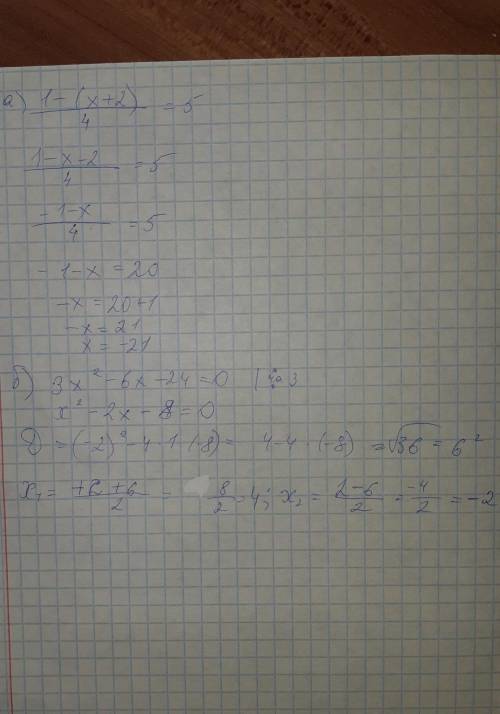 а) (1-(x+2))/4 = 5
(1-x-2)/4 = 5
(-1-x)/4 = 5
-1-x = 20
-x = 20+1
-x = 21
x = -21
б) 3x² - 6x - 24 = 0 | : 3
x² - 2x - 8 = 0
D = (-2)² - 4 · 1 · (-8) = 4-4 · (-8) = √36 = 6²
x₁ = (+2+6)/2 = 8/2 = 4; x₂ = (2-6)/2 = -4/2 = -2